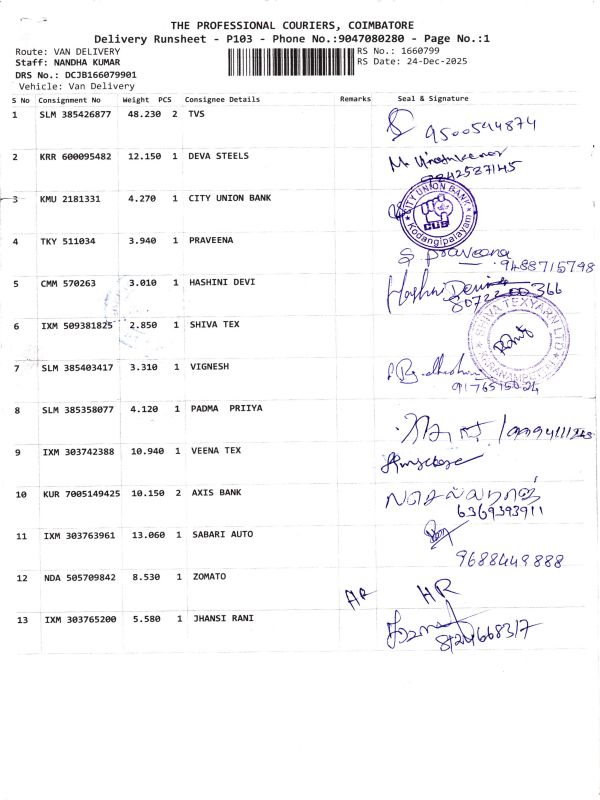 THE PROFESSIONAL COURIERS, COIMBATORE
Delivery Runsheet - P103 - Phone No.:9047080280 - Page No.:1
Route: VAN DELIVERY RS No.: 1660799
Staff: NANDHA KUMAR RS Date: 24-Dec-2025
DRS No.: DCJB166079901
Vehicle: Van Delivery
S No Consignment No Weight PCS Consignee Details Remarks Seal & Signature
1 SLM 385426877 48.230 2 TVS 9500544874
2 KRR 600095482 12.150 1 DEVA STEELS
9842587145
3 KMU 2181331 4.270 1 CITY UNION BANK CITY UNION BANK CUB Kodangipalayam
4 TKY 511034 3.940 1 PRAVEENA S praveena
9488715798
5 CMM 570263 3.010 1 HASHINI DEVI Hashni Devi
6 IXM 509381825 2.850 1 SHIVA TEX SHIVA TEXYARN LTD
7 SLM 385403417 3.310 1 VIGNESH
8 SLM 385358077 4.120 1 PADMA PRIIYA
9 IXM 303742388 10.940 1 VEENA TEX
10 KUR 7005149425 10.150 2 AXIS BANK
6369393911
11 IXM 303763961 13.060 1 SABARI AUTO
9688449888
12 NDA 505709842 8.530 1 ZOMATO HR HR
13 IXM 303765200 5.580 1 JHANSI RANI
8124668317